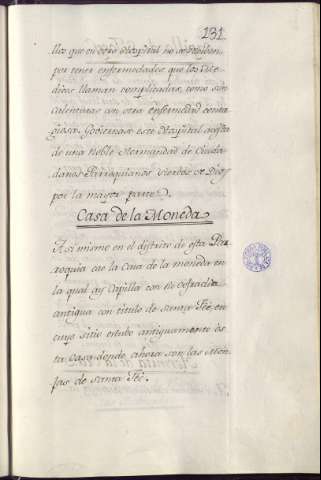 131
llos que en otro Hospital no se reciben,
por tener enfermedades que los Me-
dicos llaman complicadas, como son
calenturas con otra enfermedad conta
giosa. Goviernase este Hospital acosta
de una Noble Hermandad de Ciuda-
danos Parroquianos siervos de Dios
por la mayor parte.
Casa de la Moneda
Asi mismo en el distrito de esta Par
roquia cae la Casa de la moneda en
la qual ay Capilla con su Cofradia
antigua con titulo de Santa Fee, en
cuyo sitio estubo antiguamente es
ta Casa donde ahora son las Mon-
jas de Santa Fee.